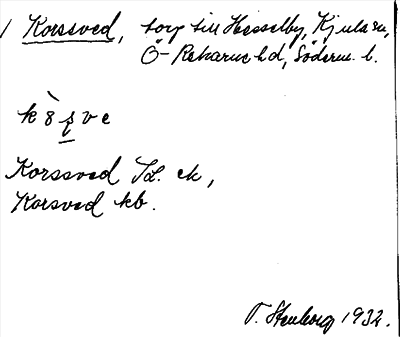 1 Korssved, torp till Hesselby, Kjula sn,
Ö-Rekarne hd, Söderm. l.
Korssved Id. ek,
Korsved kb.
1932.